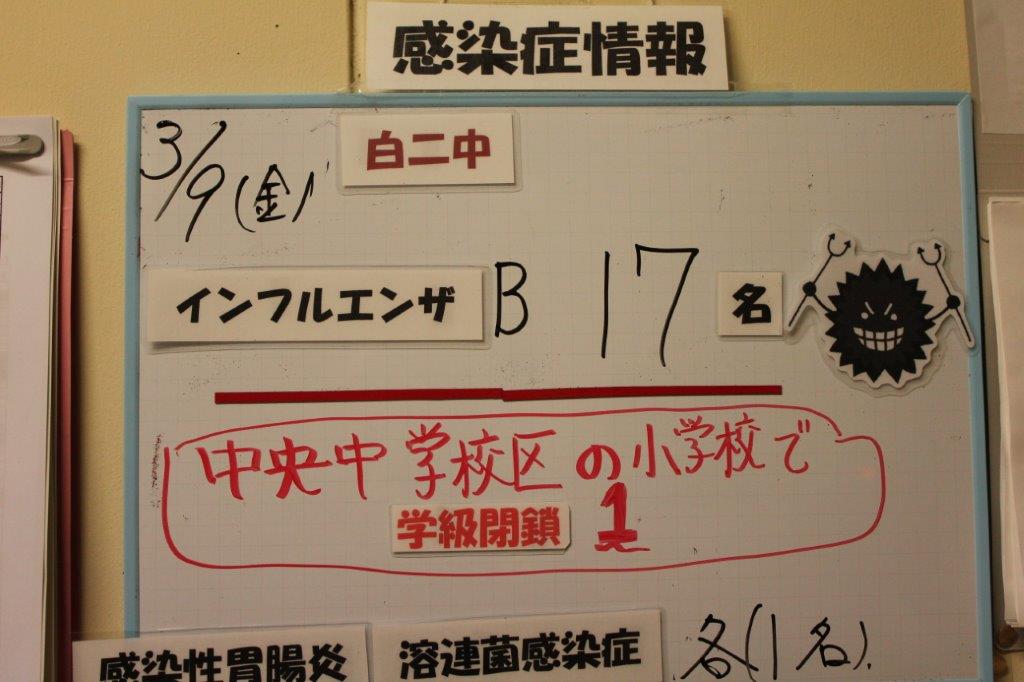 感染症情報
3/9(金) 白二中
インフルエンザ B 17 名
中央中学校区の小学校で
学級閉鎖 1
感染性胃腸炎 溶連菌感染症 各(1名).